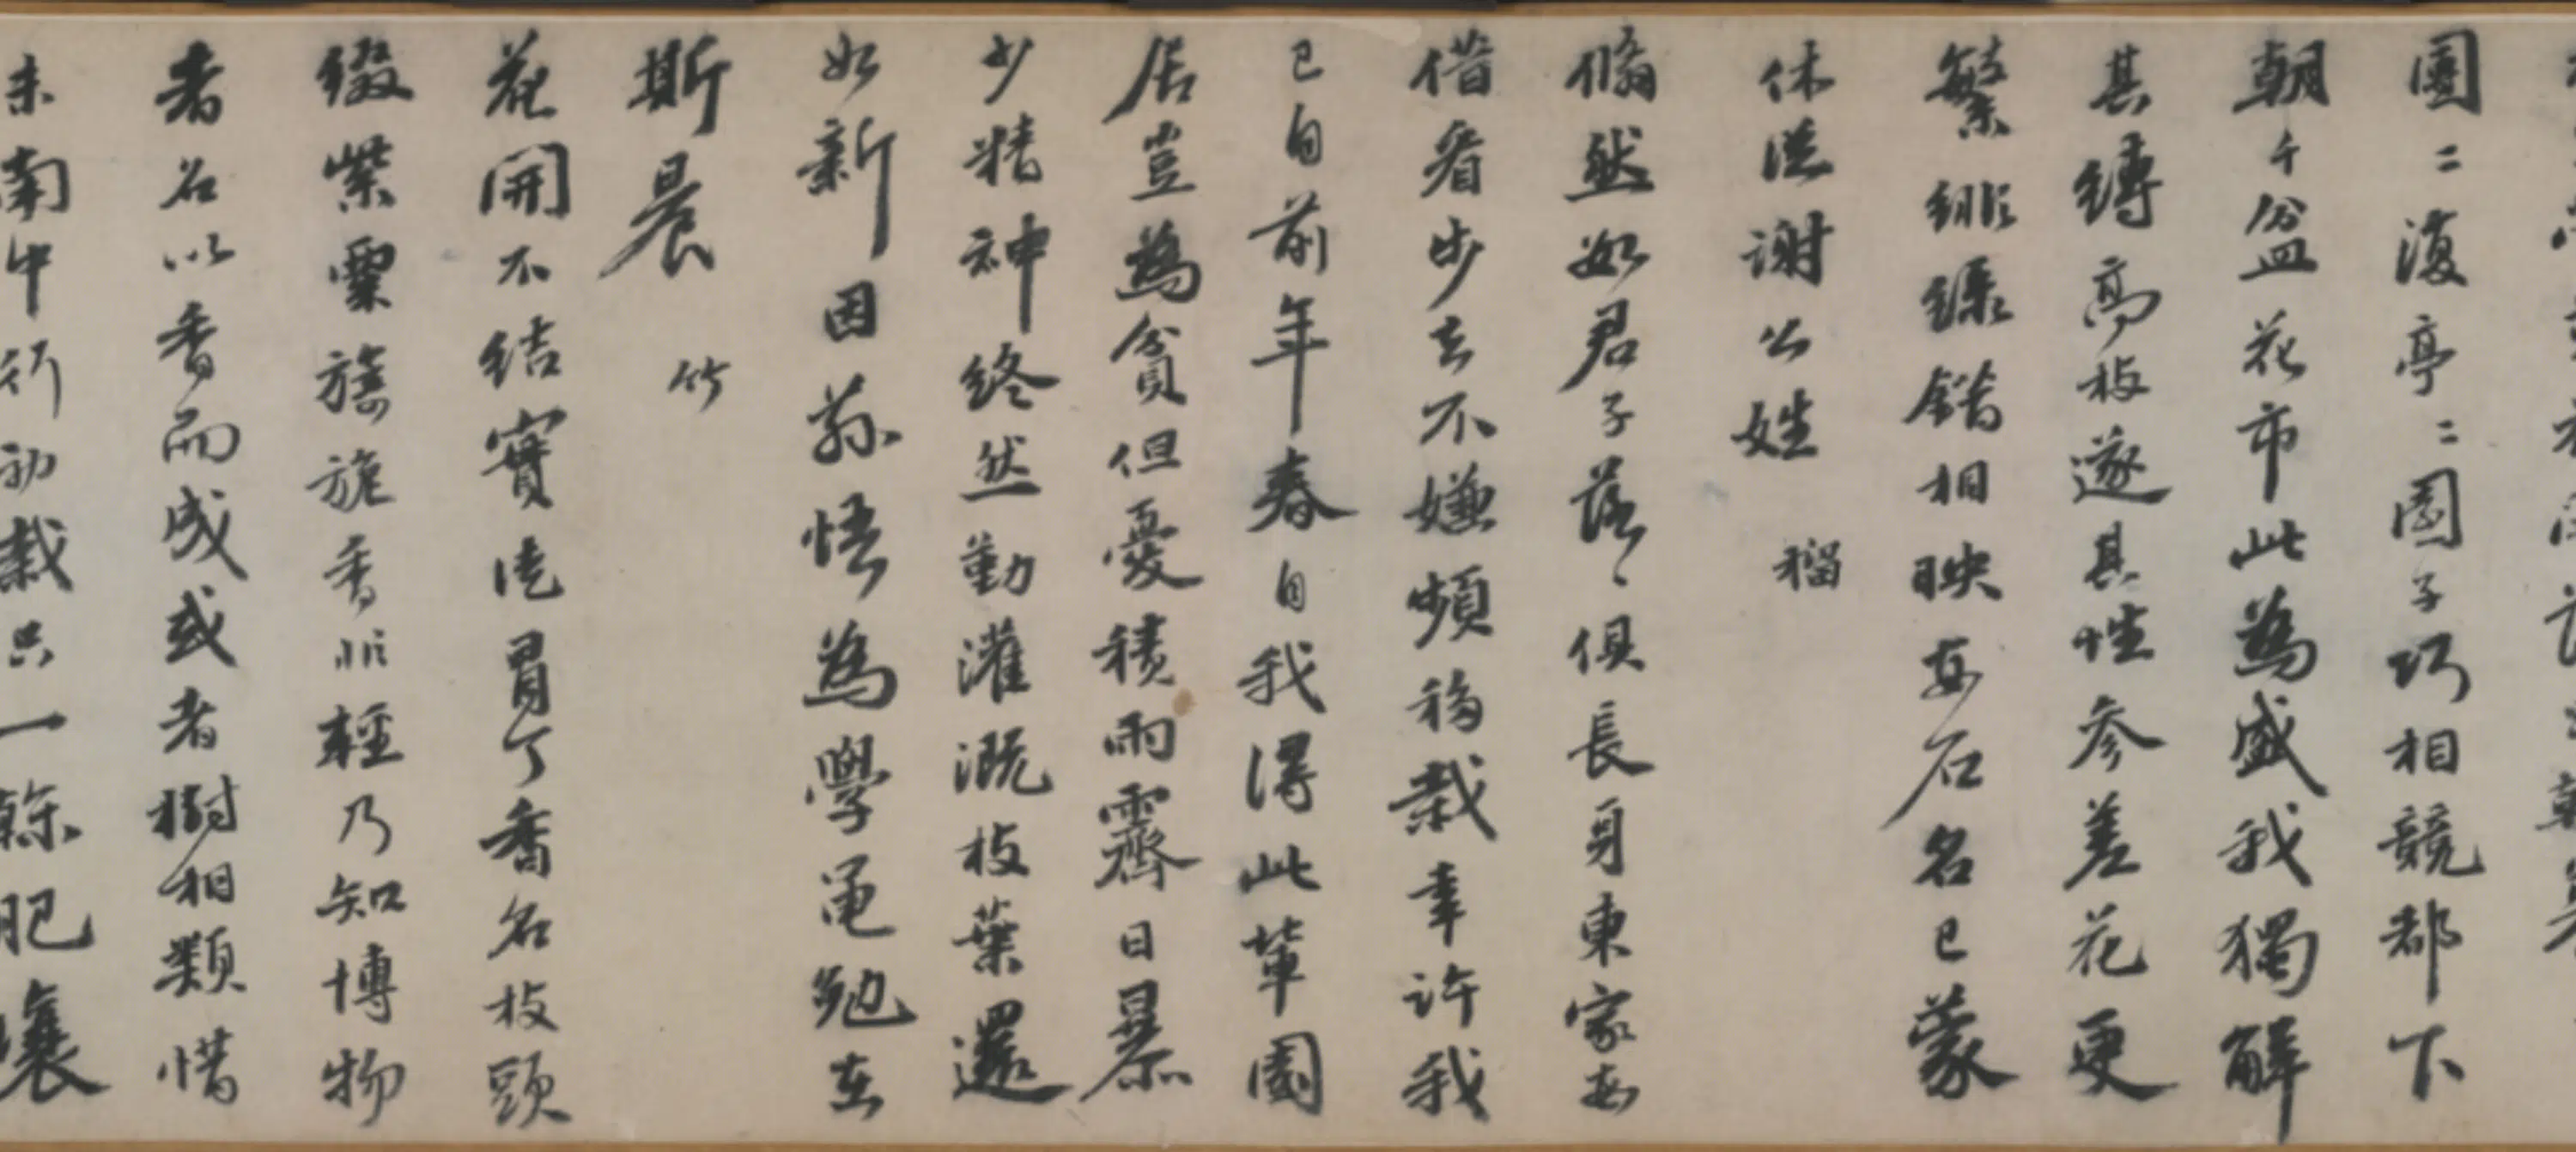 團〻復亭〻圓子巧相競都下
朝千盆花市此為盛我獨解
其縛高枝遂其性參差花更
繁緋綠錯相映安石名已蒙
休從謝公姓 榴
脩然如君子落〻俱長身東家安
借看步去不嫌頻移栽幸許我
已自前年春自我得此輩園
居豈為貧但憂積雨霽日暴
少精神終然勤灌溉枝葉還
如新因蓀悟為學黽勉在
斯晨 竹
花開不結實徒冒丁香名枝頭
綴紫粟旖旎香非輕乃知博物
者名以香而成或者樹相類惜
未南中行初栽只一餘肥壤